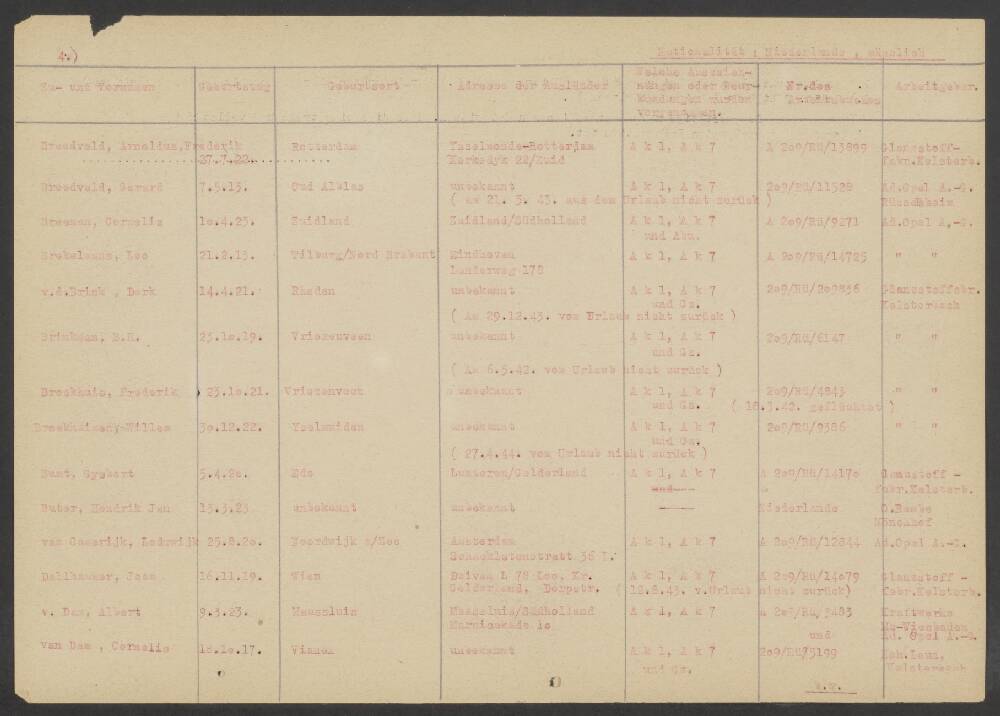 4.) Nationalität : Niederlande , männlich
Zu- und Vornamen Geburtstag Geburtsort Adresse der Ausländer Welche Ausweise Nr.des Arbeitgeber.
vorgenommen.
Breedveld, Arnoldus,Frederik Rotterdam Ysselmonde-Rotterdam A k 1, A k 7 A 2o9/Rü/13899 Glanzstoff-
27.7.22. Kerkedyk 22/Zuid fabr.Kelsterb.
Breedveld, Gerard 7.5.13. Oud Alblas unbekannt A k 1, A k 7 2o9/Rü/11528 Ad.Opel A.-G.
( am 21. 5. 43. aus dem Urlaub nicht zurück ) Rüsselsheim
Breeman, Cornelis 1o.4.23. Zuidland Zuidland/Südholland A k 1, A k 7 A 2o9/Rü/9271 Ad.Opel A.-G.
und Abm.
Brekelmans, Leo 21.2.13. Tilburg/Nord Brabant Eindhoven A k 1, A k 7 A 2o9/Rü/14725 " "
178
v.d.Brink , Derk 14.4.21. Rheden unbekannt A k 1, A k 7 2o9/Rü/2o9836 Glanzstoffabr.
und Gz. Kelsterbach
( Am 29.12.43. vom Urlaub nicht zurück )
Brinkman, B.H. 23.1o.19. Vriezenveen unbekannt A k 1, A k 7 2o9/Rü/6147 " "
und Gz.
( Am 6.5.42. vom Urlaub nicht zurück )
Broekhuis, Frederik 23.1o.21. Vriezenveen unbekannt A k 1, A k 7 2o9/Rü/4843 " "
und Gz. ( 18.3.42. geflüchtet )
Willem 3o.12.22. Ysselmuiden unbekannt A k 1, A k 7 2o9/Rü/9386 " "
und Gz.
( 27.4.44. vom Urlaub nicht zurück )
Bunt, Gysbert 5.4.2o. Ede Lunteren/Gelderland A k 1, A k 7 A 2o9/Rü/1417o Glanzstoff -
und fabr.Kelsterb.
Buter, Hendrik Jan 13.3.23 unbekannt unbekannt Niederlande
Mönchhof
van Casterijk, Lodewijk 25.8.2o. Noordwijk a/Zee Amsterdam A k 1, A k 7 A 2o9/Rü/12844 Ad.Opel A.-G.
36 I.
Dallhammer, Josm 16.11.19. Wien Duiven L 78 Loo, Kr. A k 1, A k 7 A 2o9/Rü/14o79 Glanzstoff -
Gelderland, Dorpstr. ( 12.8.43. v.Urlaub nicht zurück) fabr.Kelsterb.
v. Dam, Albert 9.3.23. Maassluis Maasluis/Südholland A k 1, A k 7 A 2o9/Rü/3483 Kraftwerke
Marnixkade 1o Mz-Wiesbaden
und Ad. Opel A.-G.
van Dam , Cornelis 18.1o.17. Vianen unbekannt A k 1, A k 7 2o9/Rü/5199
und Gz. Kelsterbach